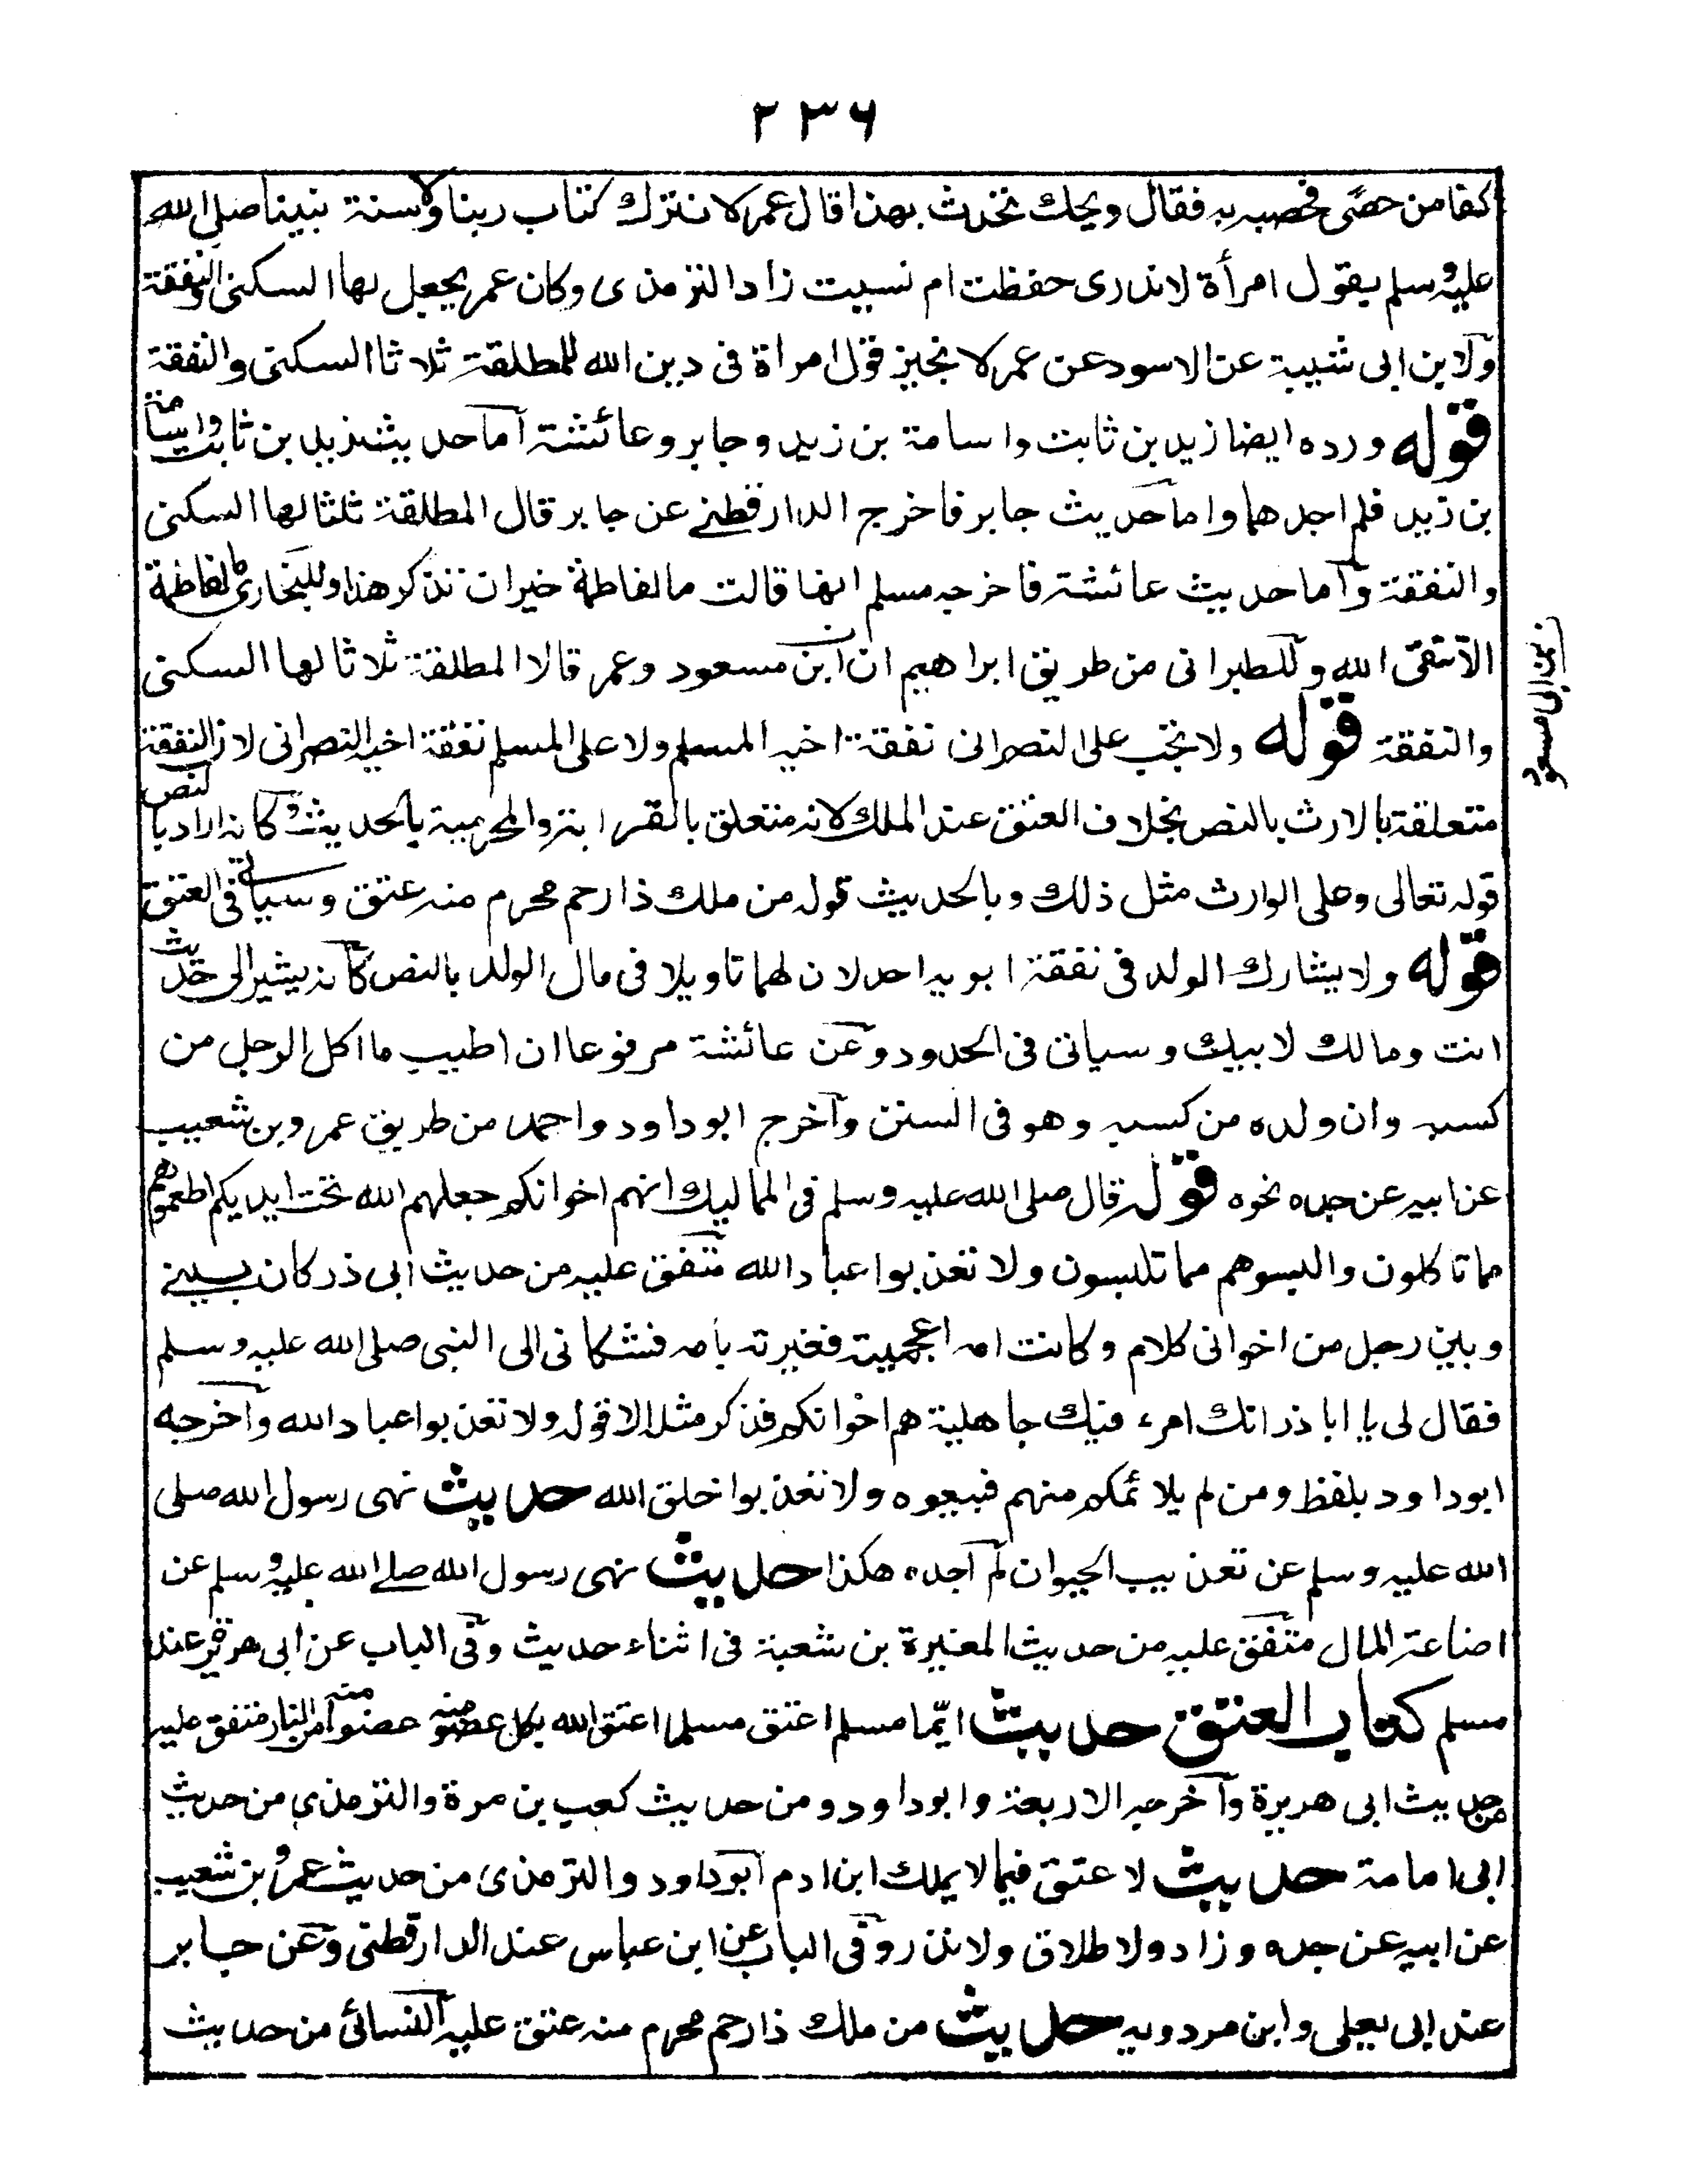 ٢٣٦
كفا من حصى فحصبه به فقال ويحك تحدث بهذا قال عمر لا نترك كتاب ربنا ولا سنة نبينا صلى الله
عليه وسلم بقول امرأة لا ندرى حفظت ام نسيت زاد الترمذى وكان عمر يجعل لها السكنى والنفقة
ولابن ابى شيبة عن الاسود عن عمر لا نجيز قول امراة فى دين الله للمطلقة ثلاثا السكنى والنفقة
قوله ورده ايضا زيد بن ثابت واسامة بن زيد وجابر وعائشة اما حديث زيد بن ثابت واسامة
بن زيد فلم اجدهما واما حديث جابر فاخرج الدارقطنے عن جابر قال المطلقة ثلثا لها السكنى
والنفقة واما حديث عائشة فاخرجه مسلم انها قالت ما لفاطمة خير ان تذكر هذا وللبخارى ما لفاطمة
الا تتقى الله وللطبرانى من طريق ابراهيم ان ابن مسعود وعمر قالا المطلقة ثلاثا لها السكنى
والنفقة قوله ولا تجب على النصرانى نفقة اخيه المسلم ولا على المسلم نفقة اخيه النصرانى لان النفقة
متعلقة بالارث بالنص بخلاف العتق عند الملك لانه متعلق بالقرابة والمحرمية بالحديث وكانه اراد بالنص
قوله تعالى وعلى الوارث مثل ذلك وبالحديث قوله من ملك ذا رحم محرم منه عتق وسياتى فى العتق
قوله ولا يشارك الولد فى نفقة ابويه احد لان لهما تاويلا فى مال الولد بالنص كانه يشير الى حديث
انت ومالك لابيك وسياتى فى الحدود وعن عائشة مرفوعا ان اطيب ما اكل الرجل من
كسبه وان ولده من كسبه وهو فى السنن واخرج ابوداود واحمد من طريق عمرو بن شعيب
عن ابيه عن جده نحوه قوله قال صلى الله عليه وسلم فى المماليك انهم اخوانكم جعلهم الله تحت ايديكم اطعموهم
مما تاكلون والبسوهم مما تلبسون ولا تعذبوا عباد الله متفق عليه من حديث ابى ذر كان بينے
وبين رجل من اخوانى كلام وكانت امه اعجمية فعيرته بامه فشكانى الى النبى صلى الله عليه وسلم
فقال لى يا ابا ذر انك امرء فيك جاهلية هم اخوانكم فذكر مثله الا قوله ولا تعذبوا عباد الله واخرجه
ابوداود بلفظ ومن لم يلائمكم منهم فبيعوه ولا تعذبوا خلق الله حديث نهى رسول الله صلى
الله عليه وسلم عن تعذيب الحيوان لم اجده هكذا حديث نهى رسول الله صلے الله عليه وسلم عن
اضاعة المال متفق عليه من حديث المغيرة بن شعبة فى اثناء حديث وفى الباب عن ابى هريرة عند
مسلم كتاب العتق حديث ايّما مسلم اعتق مسلما اعتق الله بكل عضو منه عضوا منه من النار متفق عليه
من حديث ابى هريرة واخرجه الاربعة وابوداود ومن حديث كعب بن مرة والترمذى من حديث
ابى امامة حديث لا عتق فيما لا يملك ابن ادم ابوداود والترمذى من حديث عمرو بن شعيب
عن ابيه عن جده وزاد ولا طلاق ولا نذر وفى الباب عن ابن عباس عند الدارقطنى وعن جابر
عند ابى يعلى وابن مردويه حديث من ملك ذا رحم محرم منه عتق عليه النسائى من حديث